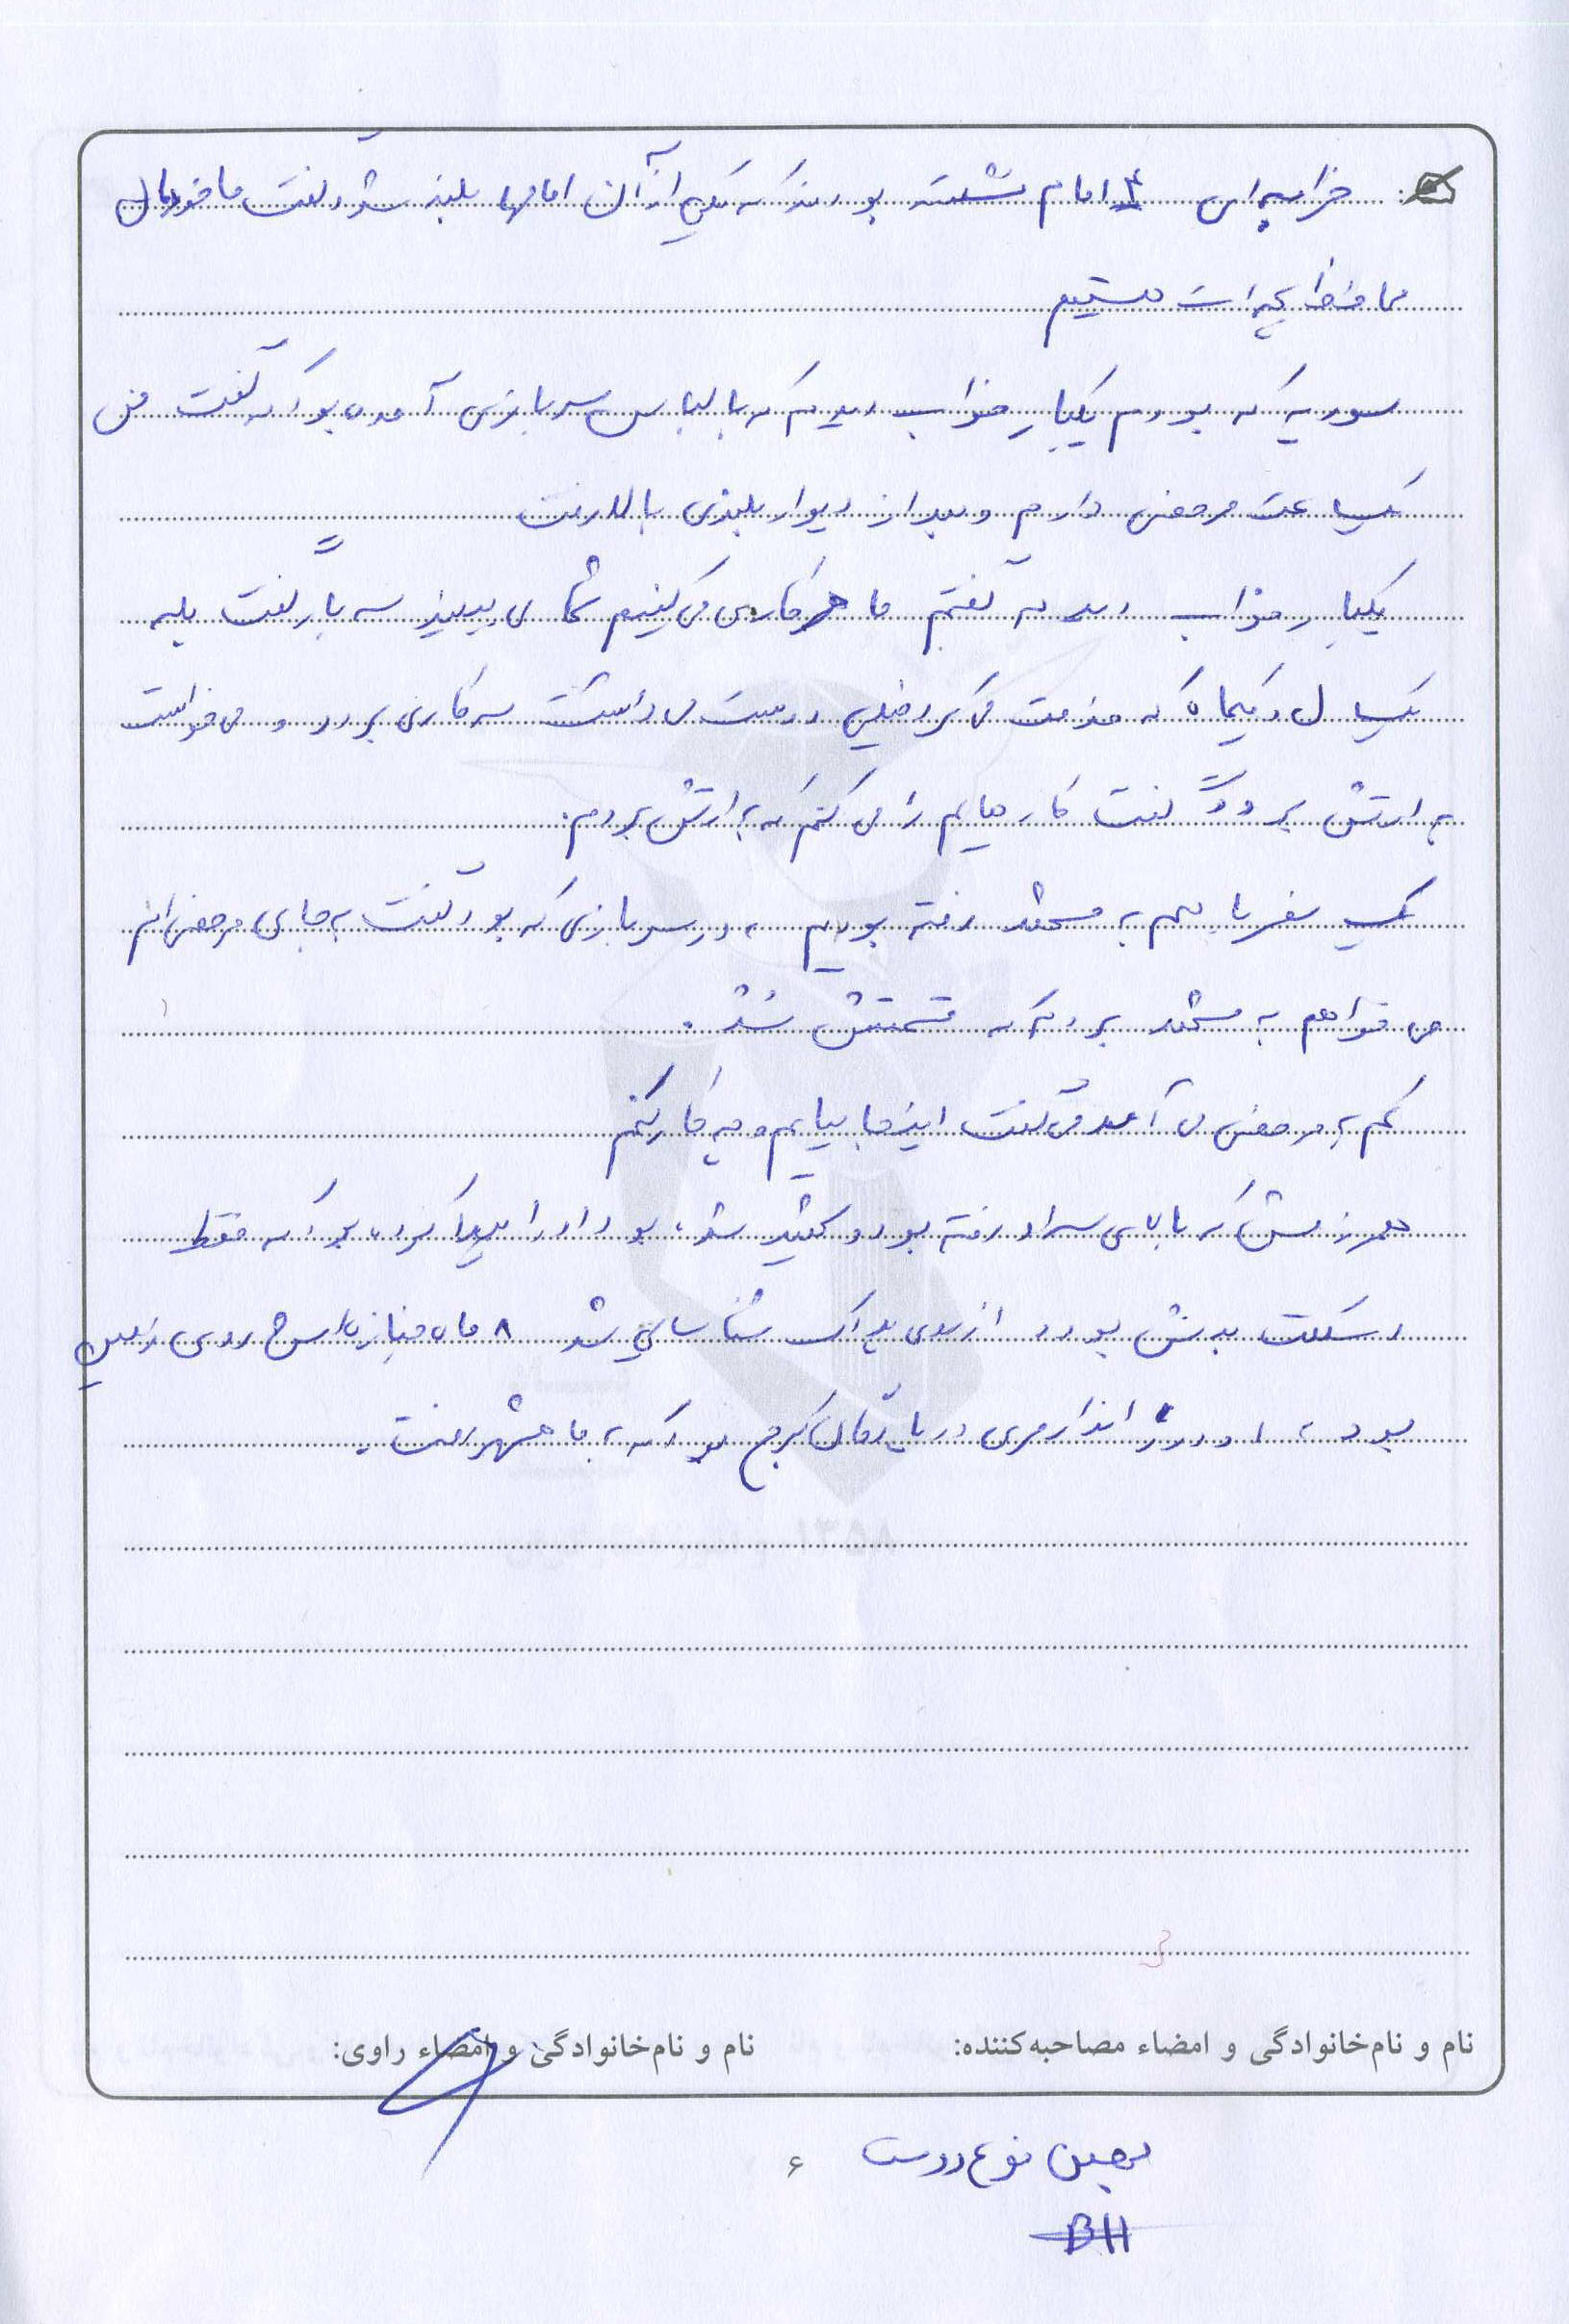 خرابه‌ای ۴ امام نشسته بودند که یکی از آن امامها بلند شد و گفت ما خودمان
محافظ بچه‌ات هستیم
سوریه که بودم یکبار خواب دیدم که با لباس سربازی آمده بود که گفت من
یکساعت مرخصی دارم و بعد از دیوار بلندی بالا رفت
یکبار خواب دیدم که گفتم ما هر کاری می کنیم شما می بینید سه بار گفت بله
یکسال و یکماه که خدمت می کرد خیلی دوست می داشت سر کاری برود و می خواست
به ارتش برود گفت کارهایم را می کنم که به ارتش بروم.
یک سفر با هم به مشهد رفته بودیم، در سربازی که بود گفت به جای مرخصی‌ام
می خواهم به مشهد بروم که قسمتش نشد.
کم به مرخصی می آمد می گفت اینجا بیایم و چه کار کنم
همرزمش که بالای سر او رفته بود و کشیده شده بود او را پیدا کرده بود که فقط
اسکلت بدنش بود و از روی پلاک شناسایی شد ۸ ماه جنازه‌اش روی زمین
بود، ژاندارمری در باغ کرج بود که به ماهشهر رفت.
نام و نام‌خانوادگی و امضاء مصاحبه‌کننده:
نام و نام‌خانوادگی و امضاء راوی:
بهمن نوع دوست
۶
BH